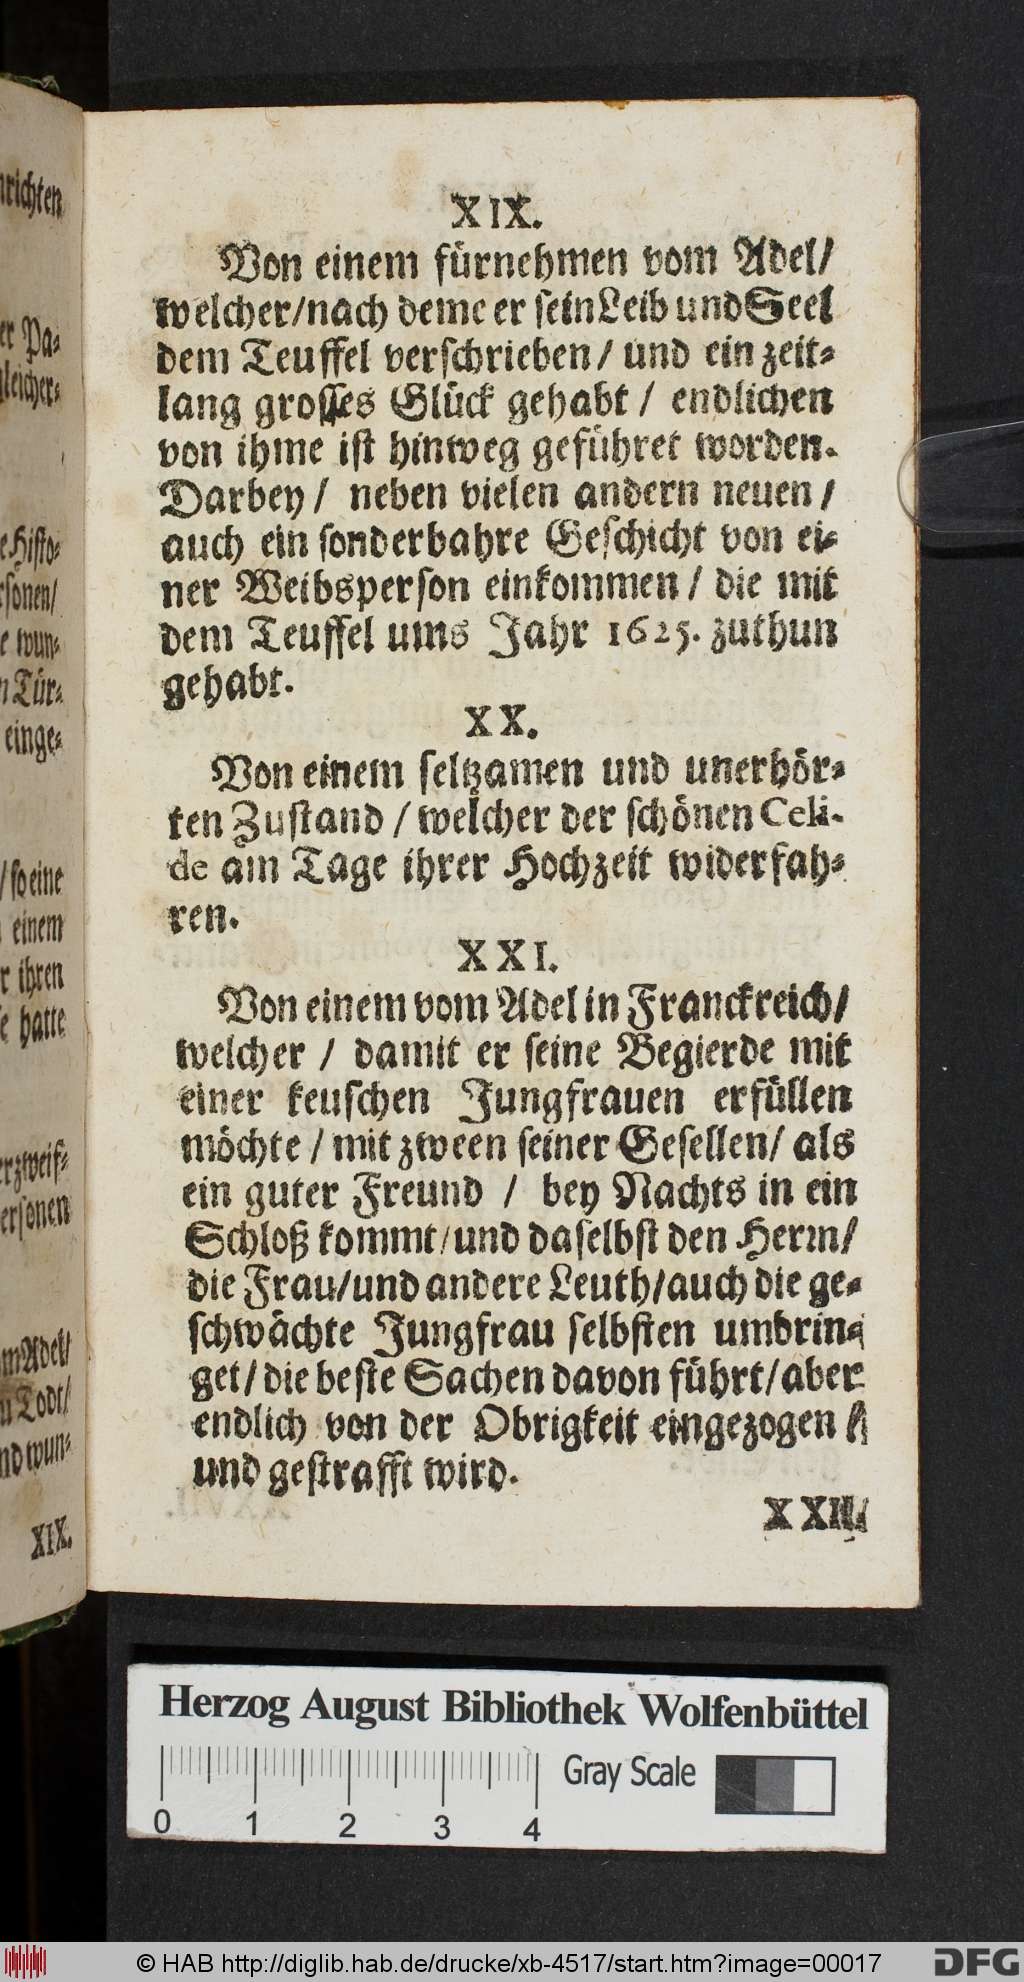 XIX.
Von einem fürnehmen vom Adel/
welcher/nach deme er sein Leib und Seel
dem Teuffel verschrieben/ und ein zeit-
lang grosses Glück gehabt / endlichen
von ihme ist hinweg geführet worden.
Darbey/ neben vielen andern neuen/
auch ein sonderbahre Geschicht von ei-
ner Weibsperson einkommen/ die mit
dem Teuffel ums Jahr 1625. zuthun
gehabt.
XX.
Von einem seltzamen und unerhör-
ten Zustand/welcher der schönen Celi-
de am Tage ihrer Hochzeit widerfah-
ren.
XXI.
Von einem vom Adel in Franckreich/
welcher / damit er seine Begierde mit
einer keuschen Jungfrauen erfüllen
möchte/mit zween seiner Gesellen/ als
ein guter Freund / bey Nachts in ein
Schloß kommt/und daselbst den Herrn/
die Frau/und andere Leuth/auch die ge-
schwächte Jungfrau selbsten umbrin-
get/die beste Sachen davon führt/aber
endlich von der Obrigkeit eingezogen
und gestrafft wird.
XXII.
nrichten
er Pa-
gleicher-
e Histo-
rsonen/
e wun-
n Tür-
einge-
/ so eine
einem
r ihren
se hatte
erzweif-
ersonen
m Adel/
u Todt/
nd wun-
XIX.
Herzog August Bibliothek Wolfenbüttel
Gray Scale
0 1 2 3 4
© HAB http://diglib.hab.de/drucke/xb-4517/start.htm?image=00017
DFG